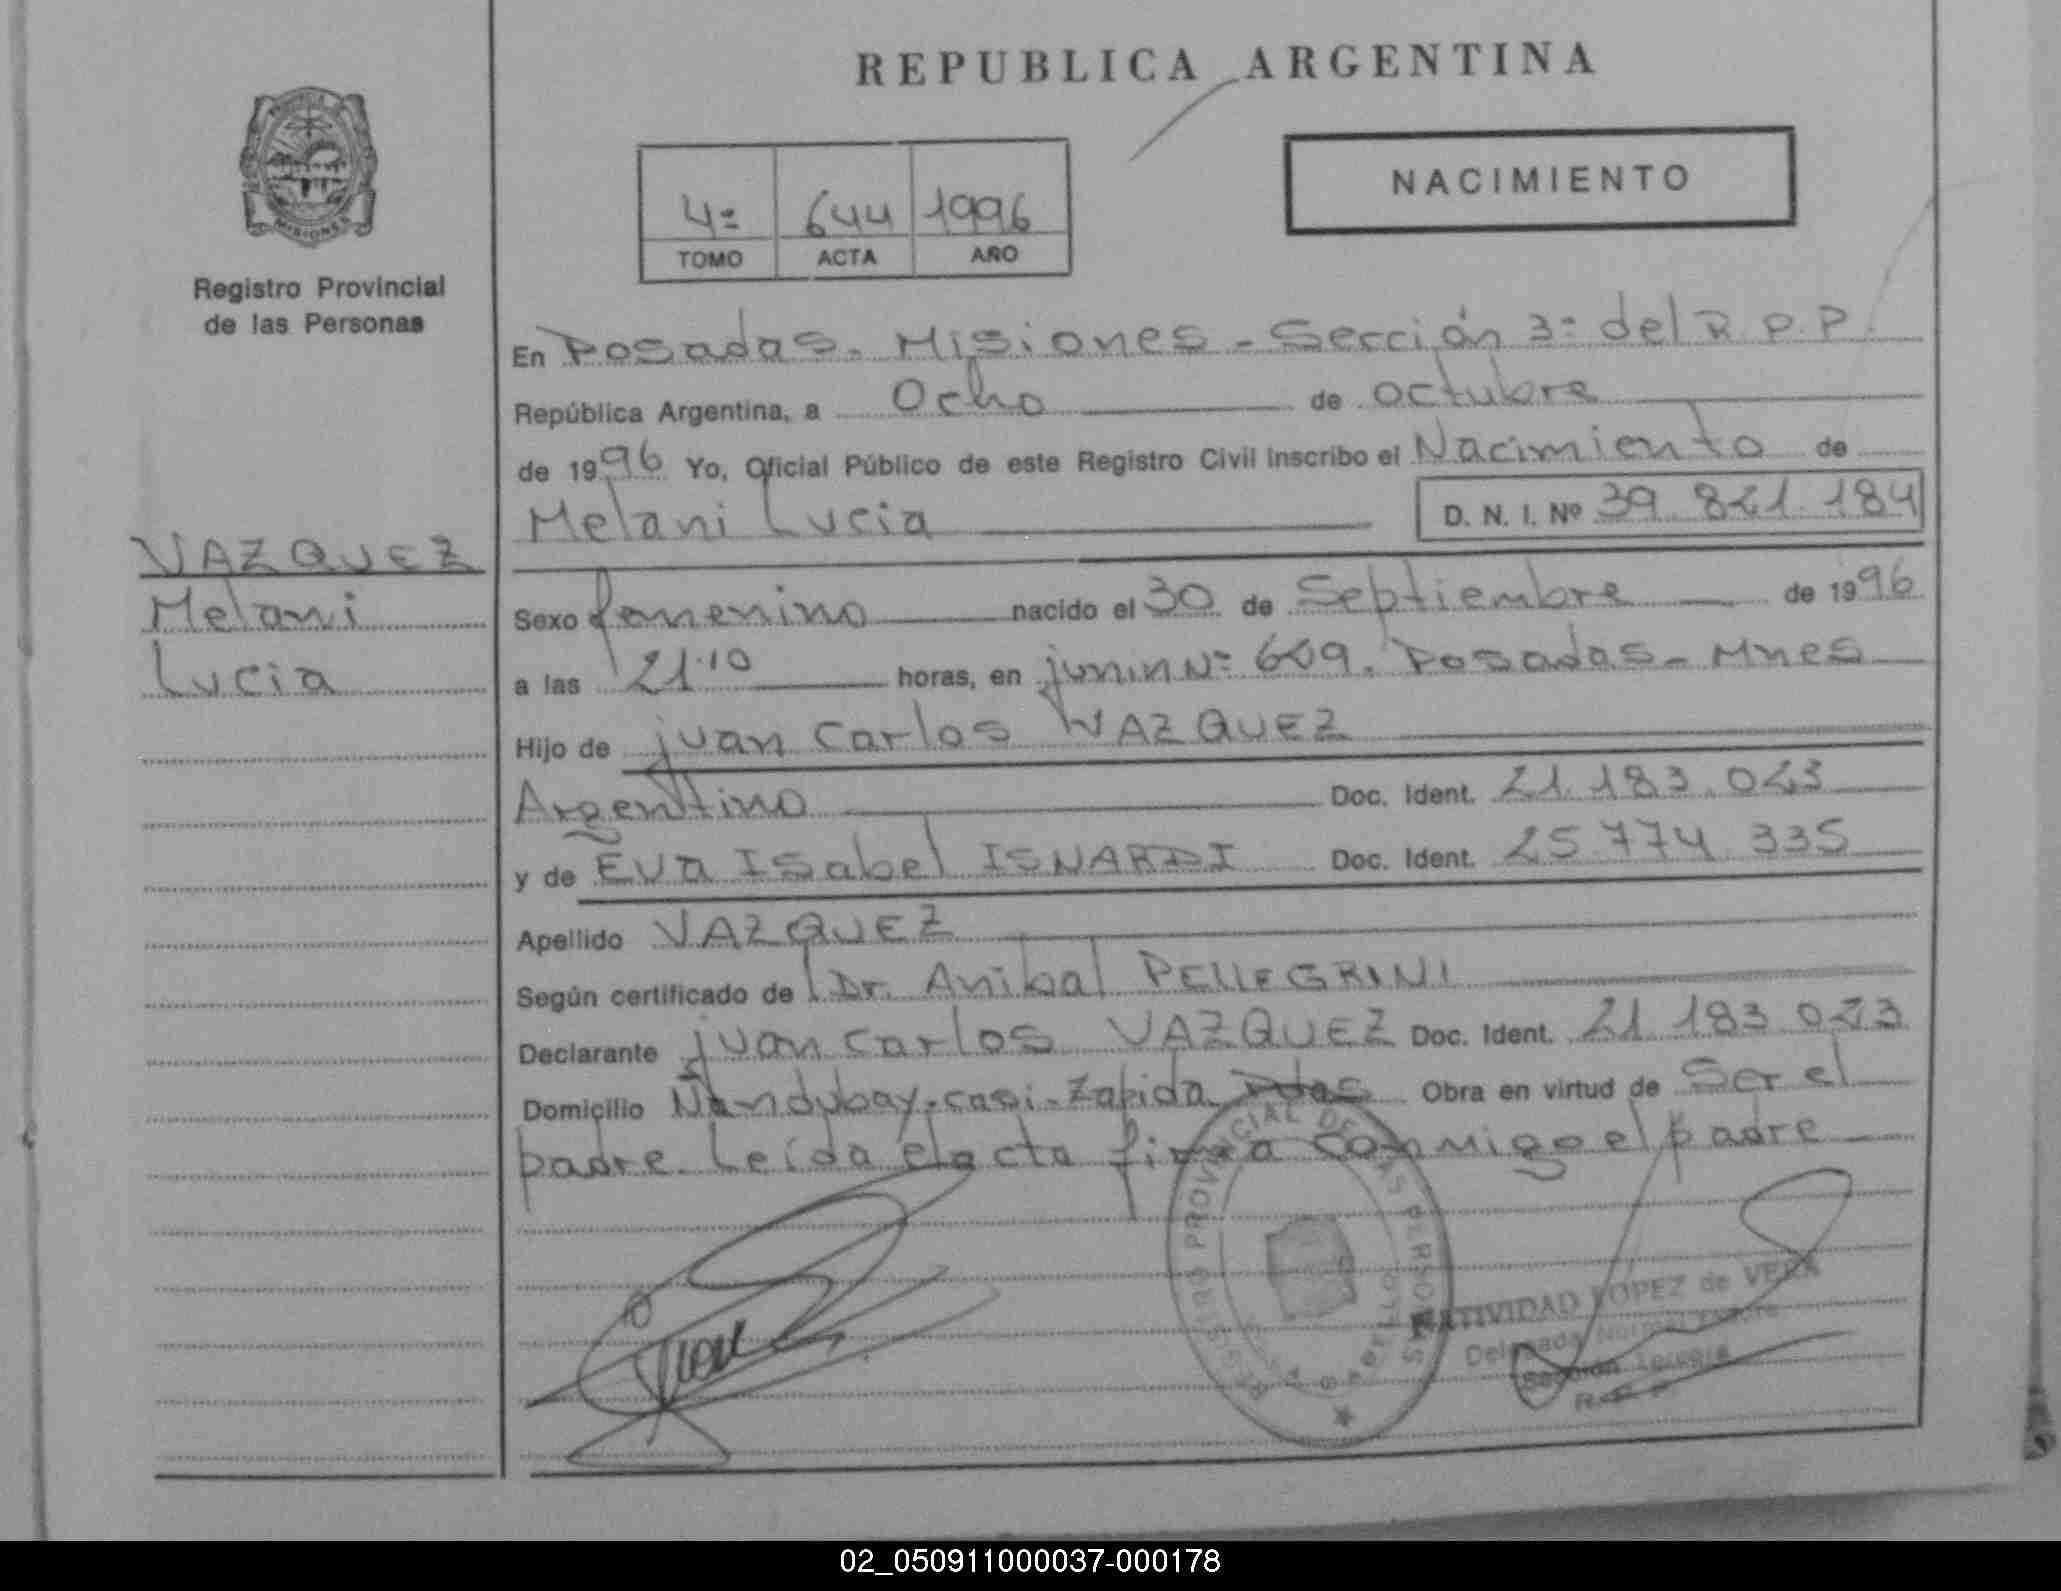 REPUBLICA ARGENTINA
NACIMIENTO
4º 644 1996
TOMO ACTA AÑO
MISIONES
Registro Provincial
de las Personas
En Posadas. Misiones - Sección 3º del R.P.P.
República Argentina, a Ocho de octubre
de 1996 Yo, Oficial Público de este Registro Civil inscribo el Nacimiento de
Melani Lucia D. N. I. Nº 39.821.184
VAZQUEZ
Melani
Lucia
Sexo femenino nacido el 30 de Septiembre de 1996
a las 21.10 horas, en junin Nº 609. Posadas - Mnes
Hijo de juan Carlos VAZQUEZ
Argentino Doc. Ident. 21.183.023
y de Eva Isabel ISNARDI Doc. Ident. 25.774.335
Apellido VAZQUEZ
Según certificado de Dr. Anibal PELLEGRINI
Declarante juan Carlos VAZQUEZ Doc. Ident. 21 183 023
Domicilio Ñandubay. casi. Zabida Pdas Obra en virtud de Ser el
padre. Leida el acta firma conmigo el padre
REGISTRO PROVINCIAL DE LAS PERSONAS
NATIVIDAD LOPEZ de VERA
Delegada
Sección Tercera
R. P. P.
Juan
02_050911000037-000178